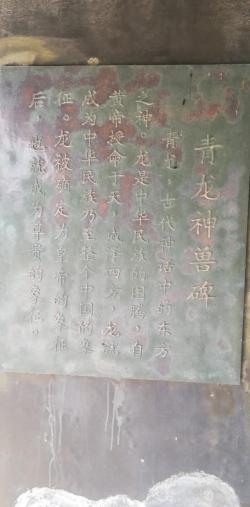 青龙神兽碑
青龙，古代神话中的东方
之神。龙是中华民族的图腾，自
黄帝授命于天，威泽四方，龙就
成为中华民族乃至整个中国的象
征。龙被确定为皇帝的象征
后，也就成为尊贵的象征。